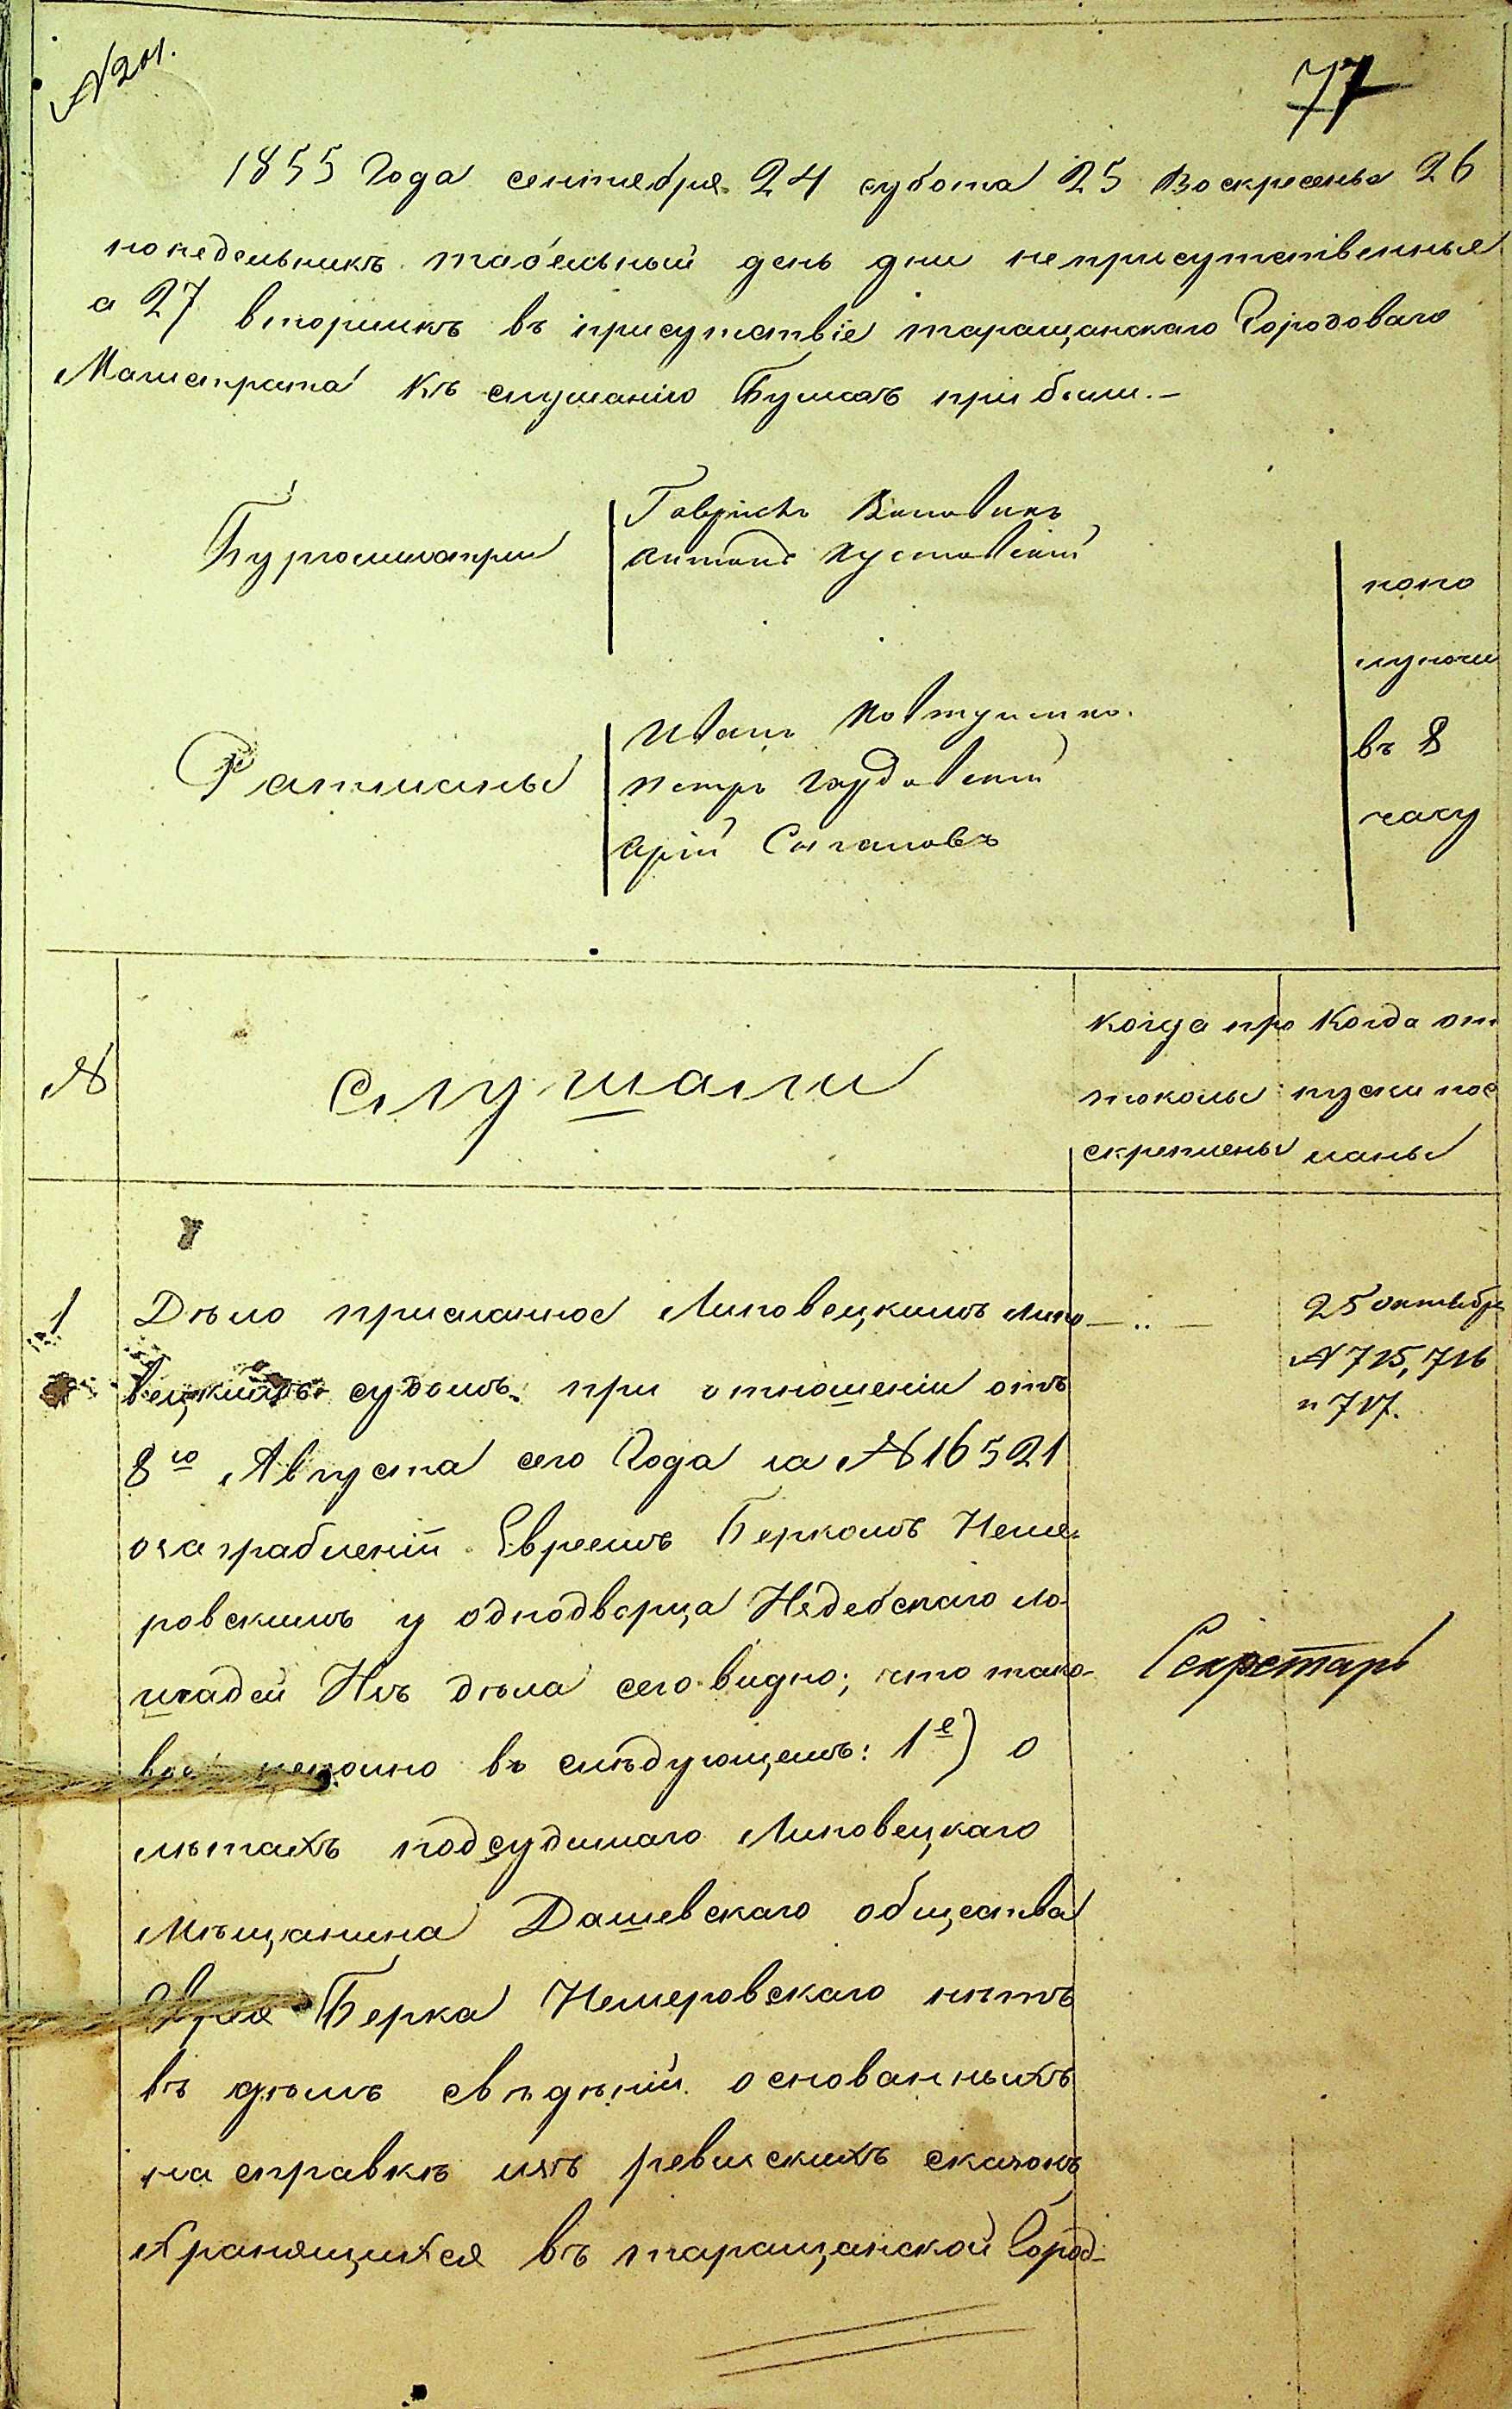 № 201.
77
1855 Года сентебря 24 субота 25 Воскресенье 26
понедельникъ табельный день дни неприсутственные
а 27 вторникъ въ присутствіе таращанскаго Городоваго
Магистрата Къ слушанію Бумагъ прибыли.-
Бургомистры
Гавріилъ
антонъ Пустовскій
Ратманы
Иванъ
петръ
арій Сигаловъ
попо
луночи
въ 8
часу
№
слушали
когда про
токолы
скреплены
Когда от
пуски пос
ланы
1
Дѣло присланное Липовецкимъ Липо
вецкимъ судомъ при отношеніи отъ
8го Августа сего Года за № 16521
о заграбленій Евреемъ Беркомъ Неме-
ровскимъ у однодворца Недебскаго ло-
шадей Изъ дѣла сего видно; что тако-
вое неполно въ слѣдующемъ: 1е) о
лѣтахъ подсудимаго Липовецкаго
Мѣщанина Дашевскаго общества
Еврея Берка Немеровскаго нѣтъ
въ дѣлѣ свѣдѣній основанныхъ
на справкѣ изъ ревискихъ сказокъ
хранящихся въ таращанской Город-
25 октября
№ 715, 716
и 717.
Секретарь